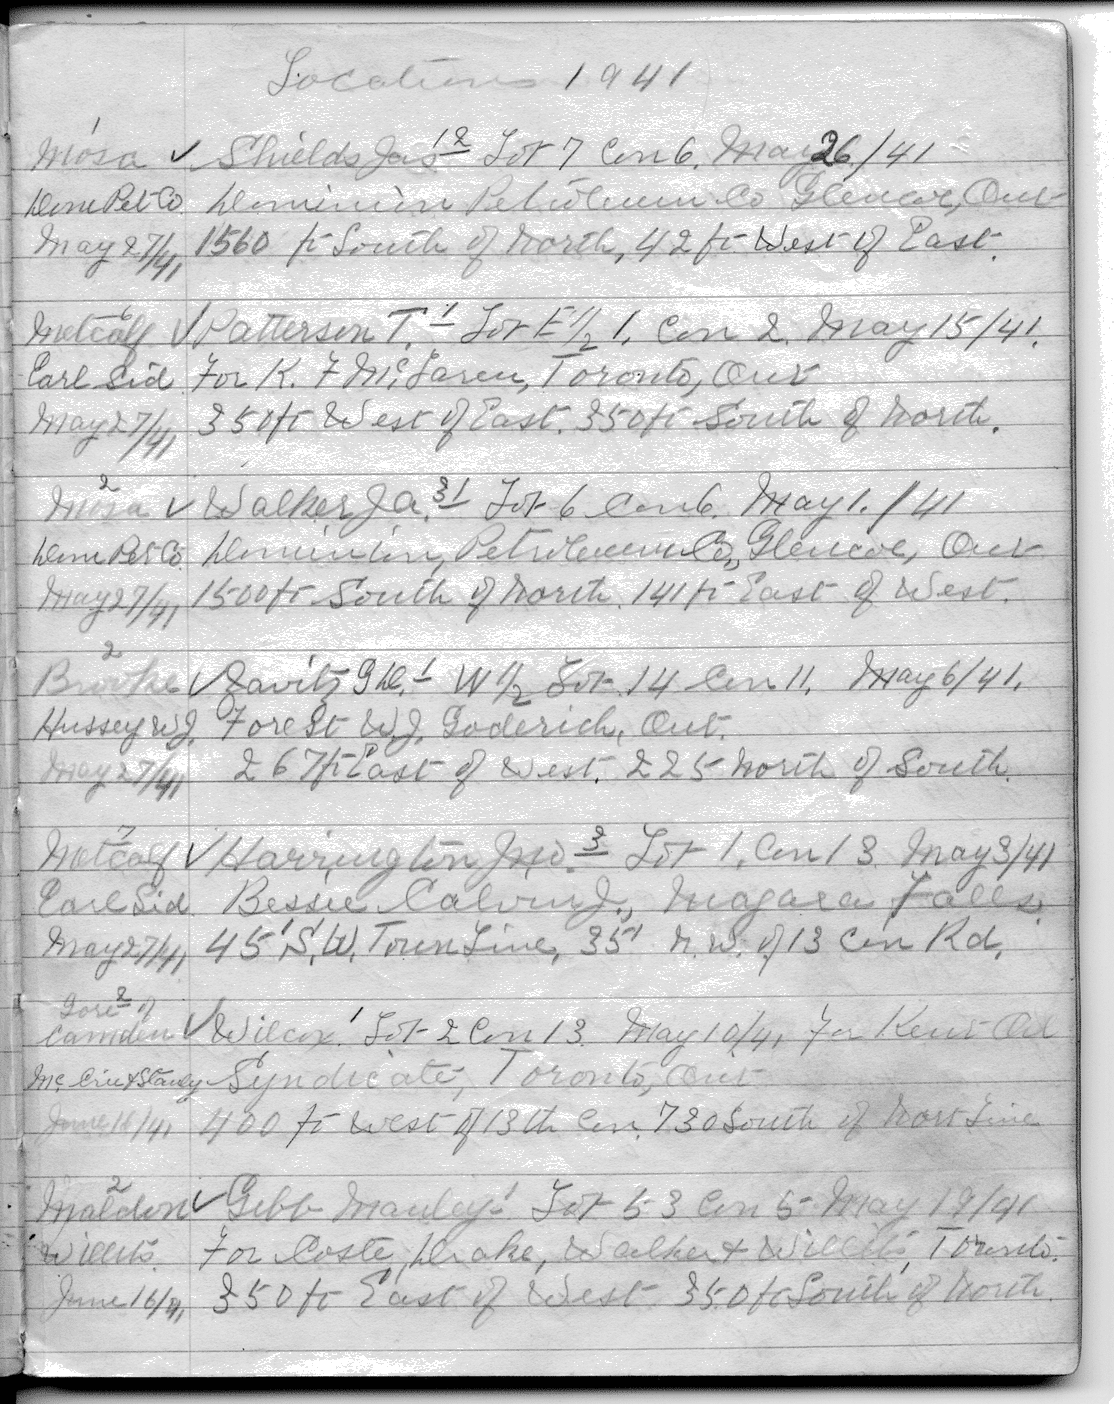 Locations 1941
1
Mosa ✓ Shields Jas 12 Lot 7 Con 6. May 26/41
Dom Pet Co. Dominion Petroleum Co Glencoe, Ont
May 27/41 1560 ft South of North, 42 ft West of East.
6
Metcalf ✓ Patterson T. 1 Lot E 1/2 1, Con 2. May 15/41.
Earl Sid For K. F McLaren, Toronto, Ont
May 27/41 350 ft West of East. 350 ft South of North.
2
Mosa ✓ Walker J a. 31 Lot 6 Con 6. May 1./41
Dom Pet Co. Dominion, Petroleum Co., Glencoe, Ont
May 27/41 1500 ft South of North. 141 ft East of West.
2
Brooke ✓ Zavitz 1 W 1/2 Lot 14 Con 11. May 6/41.
Hussey W J. Forest W. J. Goderich, Ont.
May 27/41 267 ft East of West. 225 North of South.
7
Metcalf ✓ Harrington Jno. 3 Lot 1, Con 13 May 3/41
Earl Sid Bessie Calvin J., Niagara Falls.
May 27/41 45' S. W. Town Line, 35' N. W. of 13 Con Rd.
Gore 2 of
Camden ✓ Wilcox. 1 Lot 2 Con 13. May 10/41 For Kent Oil
Syndicate, Toronto, Ont
June 16/41 400 ft West of 13th Con. 730 South of Nort Line
2
Maldon ✓ Gibb Manley 1 Lot 53 Con 5 May 19/41
Willits. For Coste, Drake, Walker & Willits, Toronto.
June 16/41 350 ft East of West 350 ft South of North.